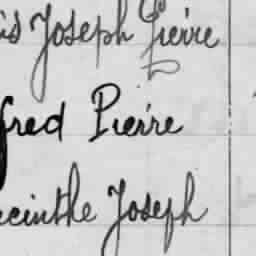 is Joseph Pierre
fred Pierre
cinthe Joseph